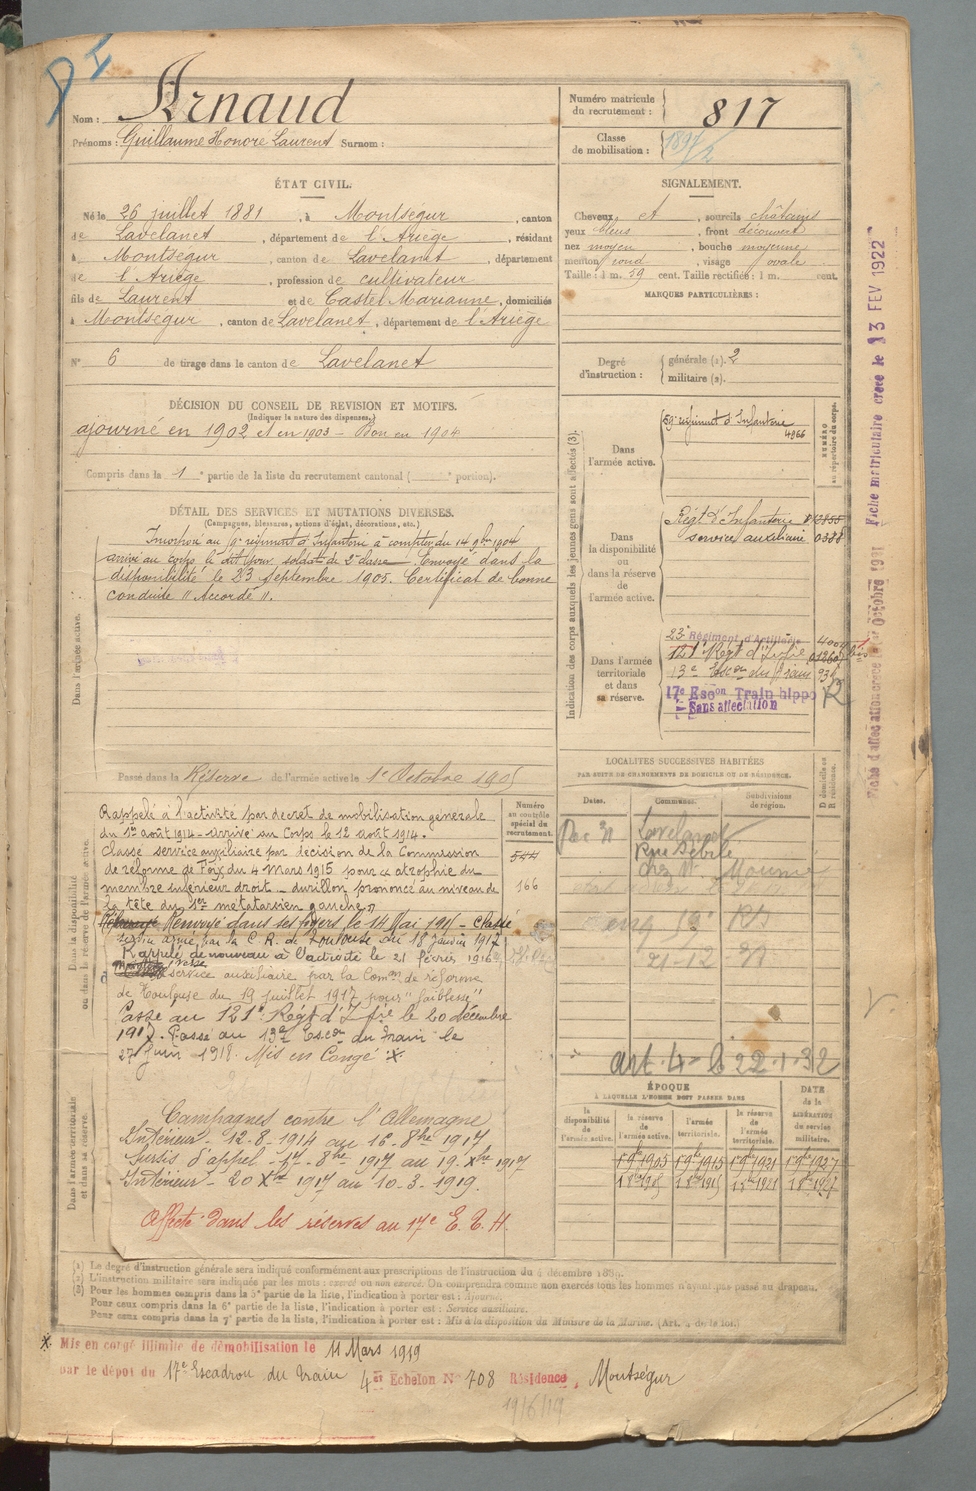 Nom : Arnaud
Prénoms : Guillaume Honoré Laurent Surnom :
Numéro matricule du recrutement : 817
Classe de mobilisation :
ÉTAT CIVIL.
Né le 26 juillet 1881, à Montségur, canton
de Lavelanet, département de l'Ariège, résidant
à Montségur, canton de Lavelanet, département
de l'Ariège, profession de cultivateur
fils de Laurent et de Castel Marianne, domiciliés
à Montségur, canton de Lavelanet, département de l'Ariège
N° 6 de tirage dans le canton de Lavelanet
SIGNALEMENT.
Cheveux et, sourcils châtains
yeux bleus, front découvert
nez moyen, bouche moyenne
menton rond, visage ovale
Taille : 1 m. 59 cent. Taille rectifiée : 1 m. cent.
MARQUES PARTICULIÈRES :
Degré d'instruction : générale (1). 2
militaire (2).
DÉCISION DU CONSEIL DE REVISION ET MOTIFS.
(Indiquer la nature des dispenses.)
ajourné en 1902 et en 1903 – Bon en 1904
Compris dans la 1e partie de la liste du recrutement cantonal ( e portion).
DÉTAIL DES SERVICES ET MUTATIONS DIVERSES.
(Campagnes, blessures, actions d'éclat, décorations, etc.)
régiment d'Infanterie à compter du 14 9bre 1904
arrivé au corps le dit jour soldat de 2e classe. Envoyé dans la
disponibilité le 23 septembre 1905. Certificat de bonne
conduite "Accordé".
Dans l'armée active.
Passé dans la Réserve de l'armée active le 1er Octobre 1905
Indication des corps auxquels les jeunes gens sont affectés (3).
Dans l'armée active.
59e régiment d'Infanterie
4966
NUMÉRO au répertoire du corps.
Dans la disponibilité ou dans la réserve de l'armée active.
Régt d'Infanterie
service auxiliaire 0388
Dans l'armée territoriale et dans sa réserve.
23e Régiment d'Artillerie
121e Régt d'Infie
13e Escon du Train
17e Escon Train hippo
Sans affectation
LOCALITÉS SUCCESSIVES HABITÉES
PAR SUITE DE CHANGEMENTS DE DOMICILE OU DE RÉSIDENCE.
Dates. Communes. Subdivisions de région. D domicile ou R résidence.
Lavelanet
Rue
chez M.
21-12-
art. 4 - 22-1-32
Dans la disponibilité ou dans la réserve de l'armée active.
Numéro au contrôle spécial du recrutement.
544
166
Rappelé à l'activité par decret de mobilisation générale
du 1er août 1914 – Arrivé au Corps le 12 août 1914.
Classé service auxiliaire par décision de la Commission
de réforme de Foix du 4 Mars 1915 pour "atrophie du
membre inférieur droit – durillon prononcé au niveau de
la tête du 1er métatarsien gauche"
Renvoyé dans ses foyers le 14 Mai 1915 – Classé
service armé par la C. R. de Toulouse du 18 janvier 1917
Rappelé de nouveau à l'activité le 21 février 1916
service auxiliaire par la Comon de réforme
de Toulouse du 19 juillet 1917 pour "faiblesse"
Passé au 121e Régt d'Ifie le 20 décembre
1917. Passé au 13e Escon du Train le
27 Juin 1918. Mis en Congé X.
Dans l'armée territoriale et dans sa réserve.
Campagnes contre l'Allemagne
Intérieur – 12-8-1914 au 16-8bre 1917
Sursis d'appel – 17-8bre 1917 au 19-Xbre 1917
Intérieur – 20 Xbre 1917 au 10-3-1919.
Affecté dans les réserves au 17e E. T. H.
ÉPOQUE
À LAQUELLE L'HOMME DOIT PASSER DANS
la disponibilité de l'armée active. la réserve de l'armée active. l'armée territoriale. la réserve de l'armée territoriale.
DATE de la LIBÉRATION du service militaire.
1 9bre 1905 1 9bre 1915 1 9bre 1921 1 9bre 1927
1 8bre 1905 1 8bre 1915 1 8bre 1921 1 8bre 1927
(1) Le degré d'instruction générale sera indiqué conformément aux prescriptions de l'instruction du 4 décembre 1889.
(2) L'instruction militaire sera indiquée par les mots : exercé ou non exercé. On comprendra comme non exercés tous les hommes n'ayant pas passé au drapeau.
(3) Pour les hommes compris dans la 5e partie de la liste, l'indication à porter est : Ajourné.
Pour ceux compris dans la 6e partie de la liste, l'indication à porter est : Service auxiliaire.
Pour ceux compris dans la 7e partie de la liste, l'indication à porter est : Mis à la disposition du Ministre de la Marine. (Art. 4 de la loi.)
X. Mis en congé illimité de démobilisation le 11 Mars 1919
par le dépôt du 17e Escadron du Train 4e Echelon N° 708 Résidence, Montségur
Fiche matriculaire créée le 13 FEV 1922
Fiche d'affectation créée le